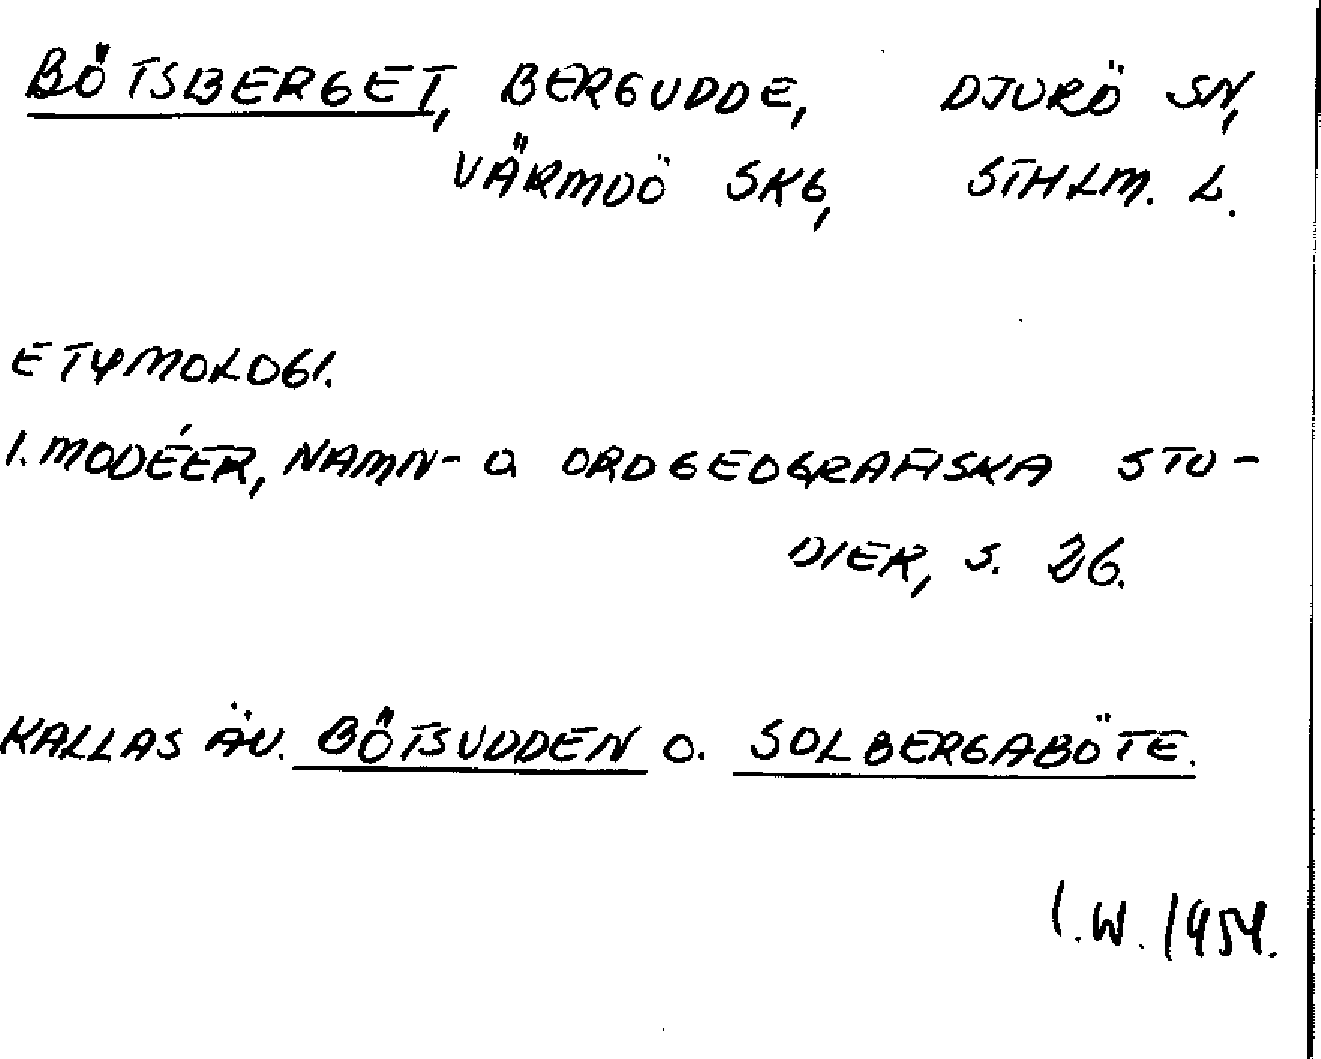 BÖTSBERGET, BERGUDDE, DJURÖ SN,
VÄRMDÖ SKG, STHLM. L.
ETYMOLOGI.
I. MODÉER, NAMN- O ORDGEOGRAFISKA STU-
DIER, S. 26.
KALLAS ÄV. BÖTSUDDEN O. SOLBERGABÖTE.
I.W. 1954.